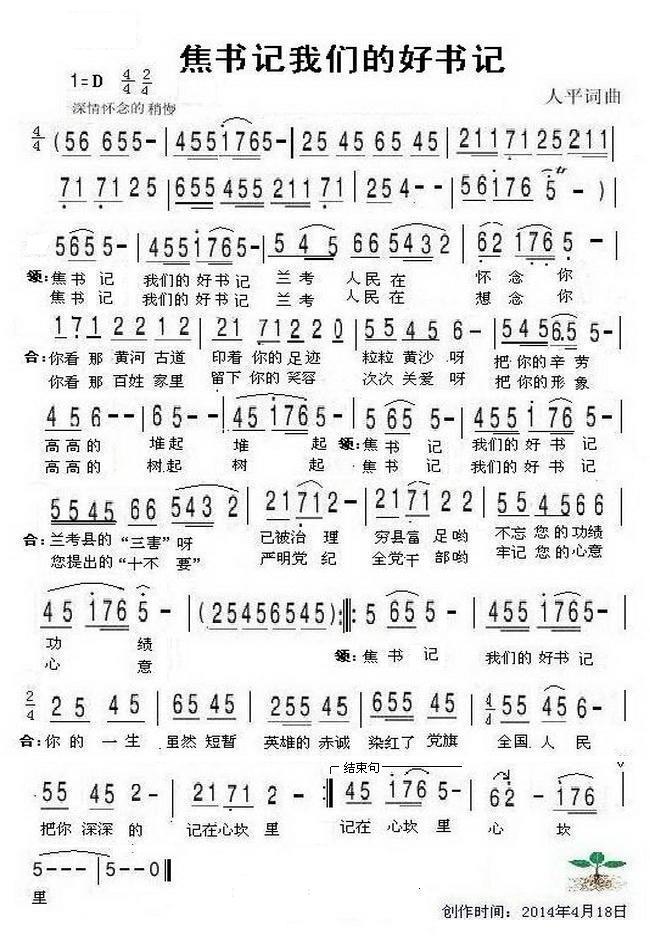 焦书记我们的好书记
1=D 4/4 2/4
深情怀念的 稍慢
人平词曲
4/4 (56 655- | 4551765- | 25 45 65 45 | 211 71 25 211 |
71 71 25 | 655 455 211 71 | 254-- | 56176 5- )
5655- | 4551765- | 5 45 66 5432 | 62 176 5- |
领:焦 书 记 我们的 好书记 兰考 人民在 怀 念 你
焦 书 记 我们的 好书记 兰考 人民在 想 念 你
171 221 12 | 21 71220 | 5545 6- | 545 6.5 5 |
合:你看 那 黄河 古道 印着 你的 足迹 粒粒 黄沙 呀 把 你的 辛 劳
你看 那 百姓 家里 留下 你的 笑容 次次 关爱 呀 把 你的 形 象
456-- | 65-- | 45 176 5- | 5 65 5- | 455 176 5- |
高高的 堆起 堆 起 领:焦 书 记 我们的 好 书 记
高高的 树起 树 起 焦 书 记 我们的 好 书 记
5545 66 5432 | 21712- | 217122 | 554566 |
合: 兰考县的 “三害” 呀 已被治 理 穷县富 足哟 不忘 您的 功绩
您提出的 “十不 要” 严明党 纪 全党干 部哟 牢记 您的 心意
45 176 5- | (25456545) :‖: 5 65 5- | 455 1765- |
功 绩 领: 焦 书 记 我们的 好书记
心 意
2/4 25 45 | 65 45 | 255 45 | 655 45 | 4/4 55 456- |
合: 你 的 一 生 虽然 短暂 英雄的 赤诚 染红了 党旗 全国 人 民
结束句
55 45 2- | 21712- :‖ 45 176 5- | 62- 176 |
把你 深深 的 记在心坎 里 记在 心坎 里 心 坎
5--- | 5--0 ‖
里
创作时间：2014年4月18日